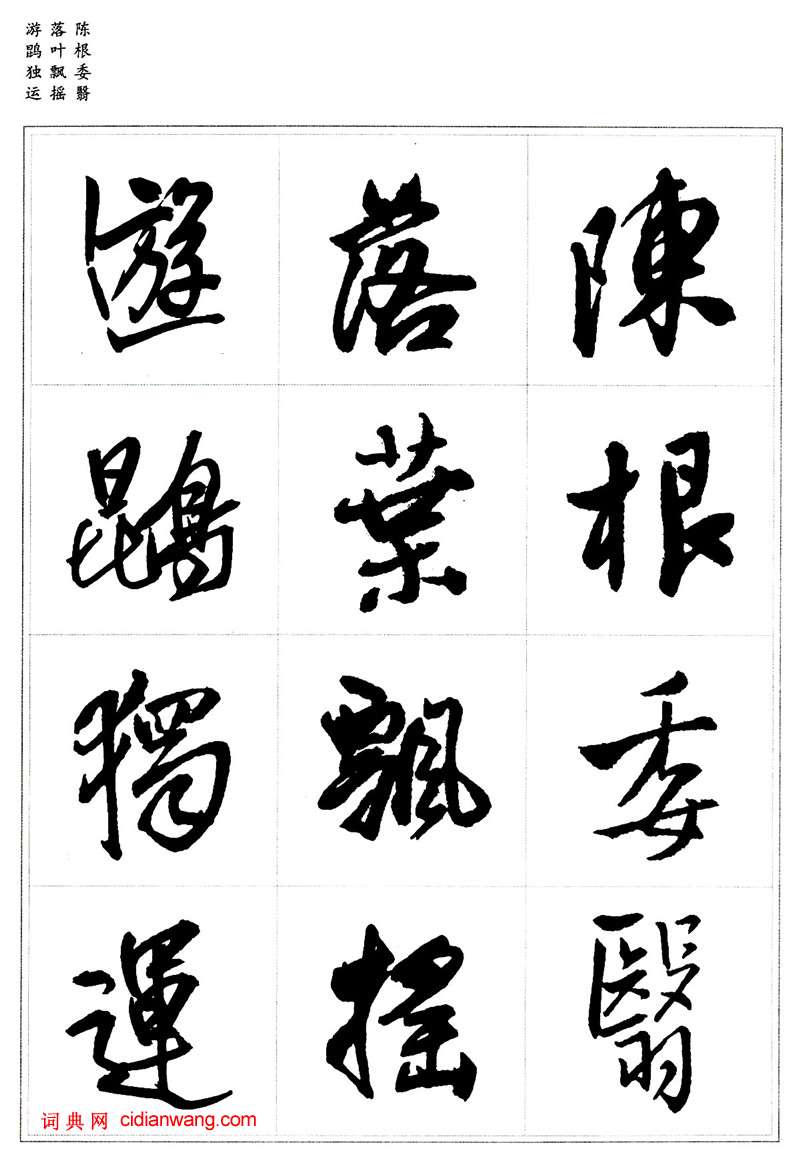 陈根委翳
落叶飘摇
游鹍独运
陳根委翳
落葉飄搖
遊鵾獨運
词典网 cidianwang.com